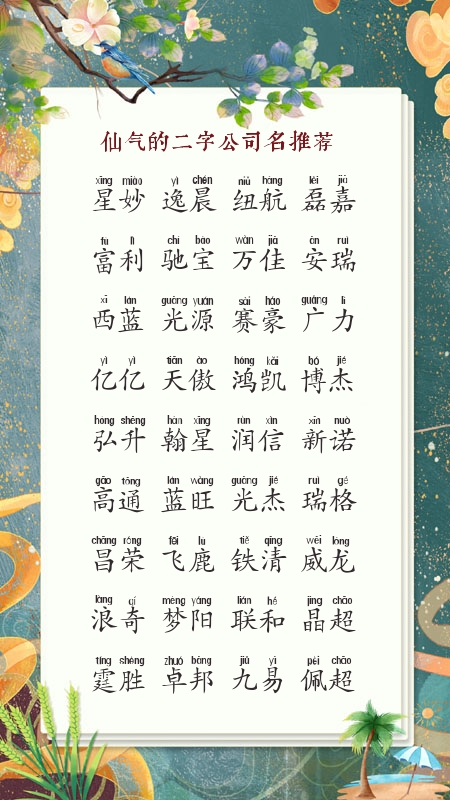 仙气的二字公司名推荐
xīng miào yì chén niǔ háng lěi jiā
星妙 逸晨 纽航 磊嘉
fù lì chí bǎo wàn jiā ān ruì
富利 驰宝 万佳 安瑞
xī lán guāng yuán sài háo guǎng lì
西蓝 光源 赛豪 广力
yì yì tiān ào hóng kǎi bó jié
亿亿 天傲 鸿凯 博杰
hóng shēng hàn xīng rùn xìn xīn nuò
弘升 翰星 润信 新诺
gāo tōng lán wàng guāng jié ruì gé
高通 蓝旺 光杰 瑞格
chāng róng fēi lù tiě qīng wēi lóng
昌荣 飞鹿 铁清 威龙
làng qí mèng yáng lián hé jīng chāo
浪奇 梦阳 联和 晶超
tíng shèng zhuó bāng jiǔ yì pèi chāo
霆胜 卓邦 九易 佩超